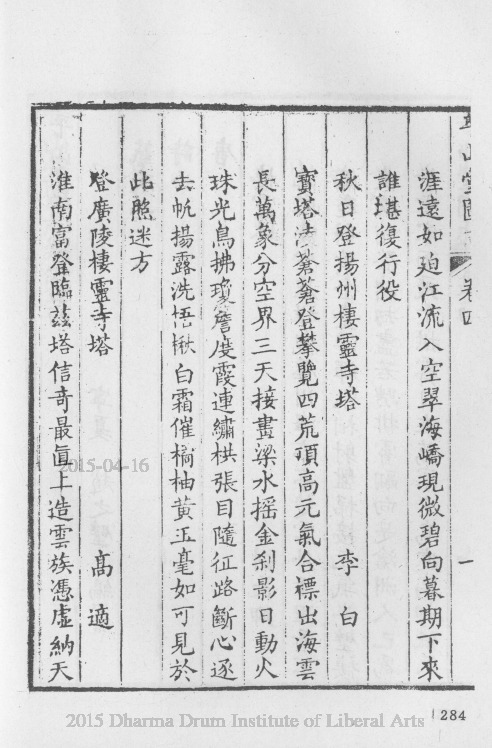 山堂圖 卷四 一
涯遠如迫江流入空翠海嶠現微碧向暮期下來
誰堪復行役
秋日登揚州棲靈寺塔 李白
寶塔凌蒼蒼登攀覽四荒頂高元氣合標出海雲
長萬象分空界三天接畫梁水搖金刹影日動火
珠光鳥拂瓊簷度霞連繡栱張目隨征路斷心逐
去帆揚露洗梧楸白霜催橘柚黃玉毫如可見於
此照迷方
登廣陵棲靈寺塔 高適
淮南富登臨茲塔信奇最直上造雲族憑虛納天
2015-04-16
284
2015 Dharma Drum Institute of Liberal Arts